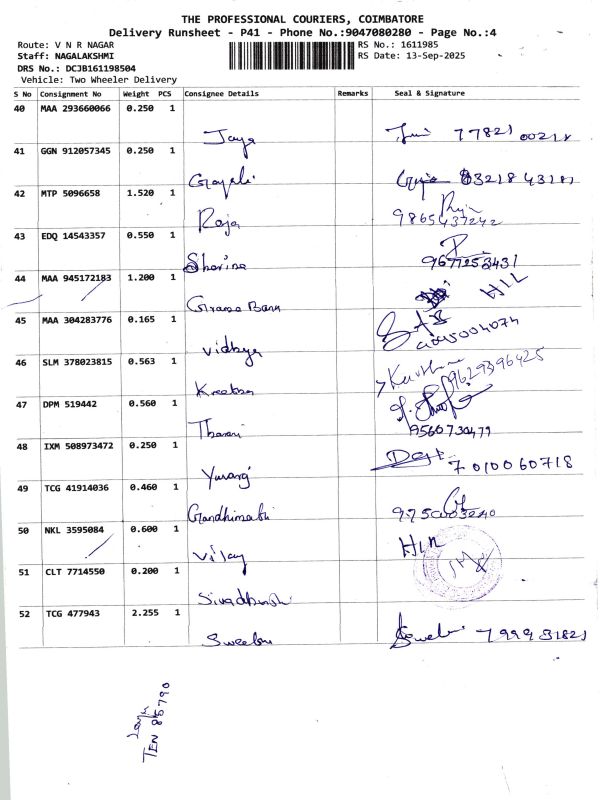 THE PROFESSIONAL COURIERS, COIMBATORE
Delivery Runsheet - P41 - Phone No.:9047080280 - Page No.:4
Route: V N R NAGAR RS No.: 1611985
Staff: NAGALAKSHMI RS Date: 13-Sep-2025
DRS No.: DCJB161198504
Vehicle: Two Wheeler Delivery
S No Consignment No Weight PCS Consignee Details Remarks Seal & Signature
40 MAA 293660066 0.250 1
Jaya
41 GGN 912057345 0.250 1
Gayali
42 MTP 5096658 1.520 1
Raja 9865437242
43 EDQ 14543357 0.550 1
Sharina 9677253431
44 MAA 945172183 1.200 1 HIL
Grama Bank
45 MAA 304283776 0.165 1
Vidhya
46 SLM 378023815 0.563 1 9629396425
Kreetha
47 DPM 519442 0.560 1
Tharani 9560730477
48 IXM 508973472 0.250 1
Yuvaraj 7010060718
49 TCG 41914036 0.460 1
Gandhimathi
50 NKL 3595084 0.600 1
Vijay
51 CLT 7714550 0.200 1
52 TCG 477943 2.255 1
TEN 885790